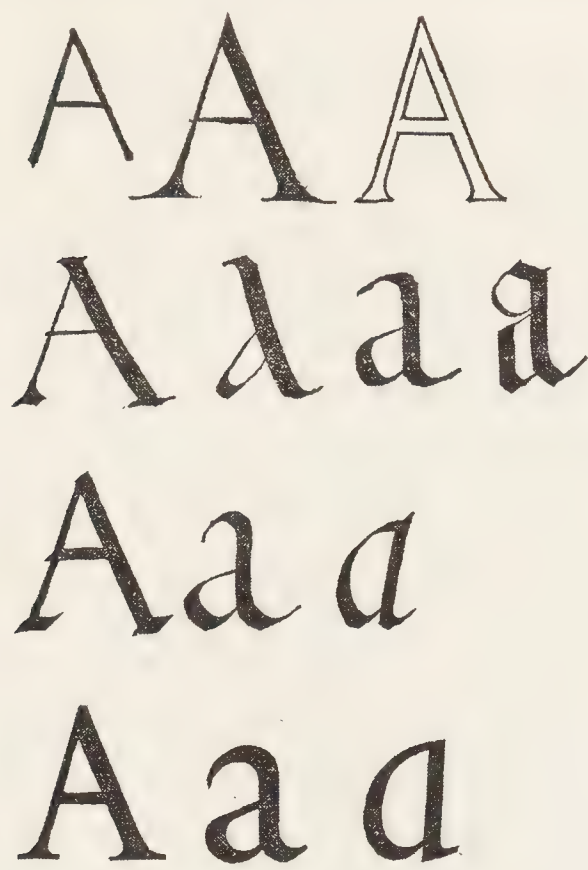 A A A
A a a a
A a a
A a a